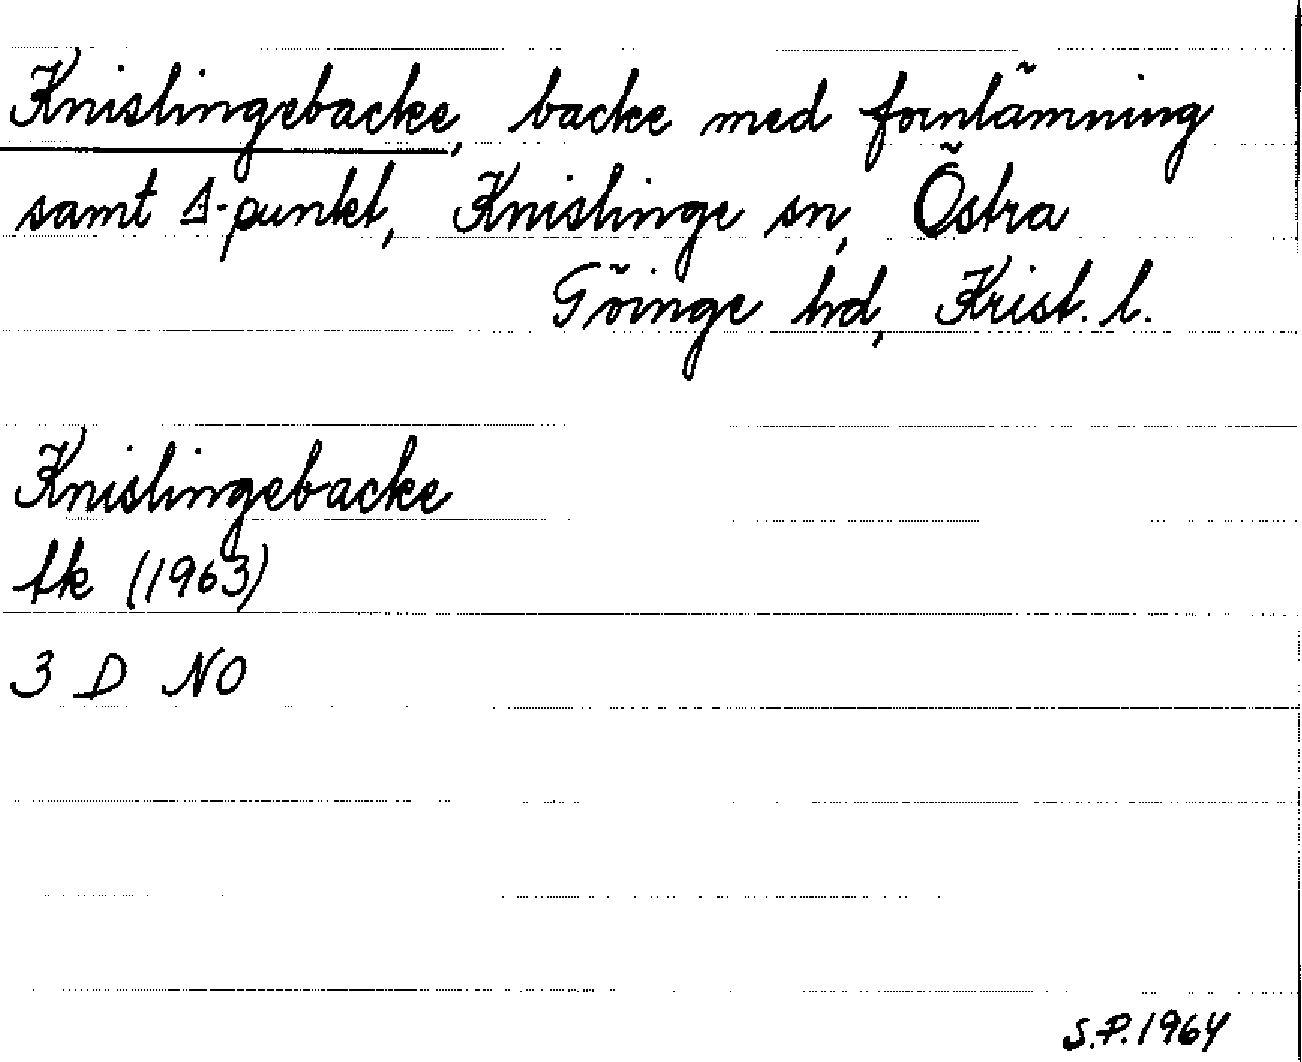 Knislingebacke, backe med fornlämning
samt Δ-punkt, Knislinge sn, Östra
Göinge hd, Krist. l.
Knislingebacke
tk (1963)
3 D NO
S.P. 1964